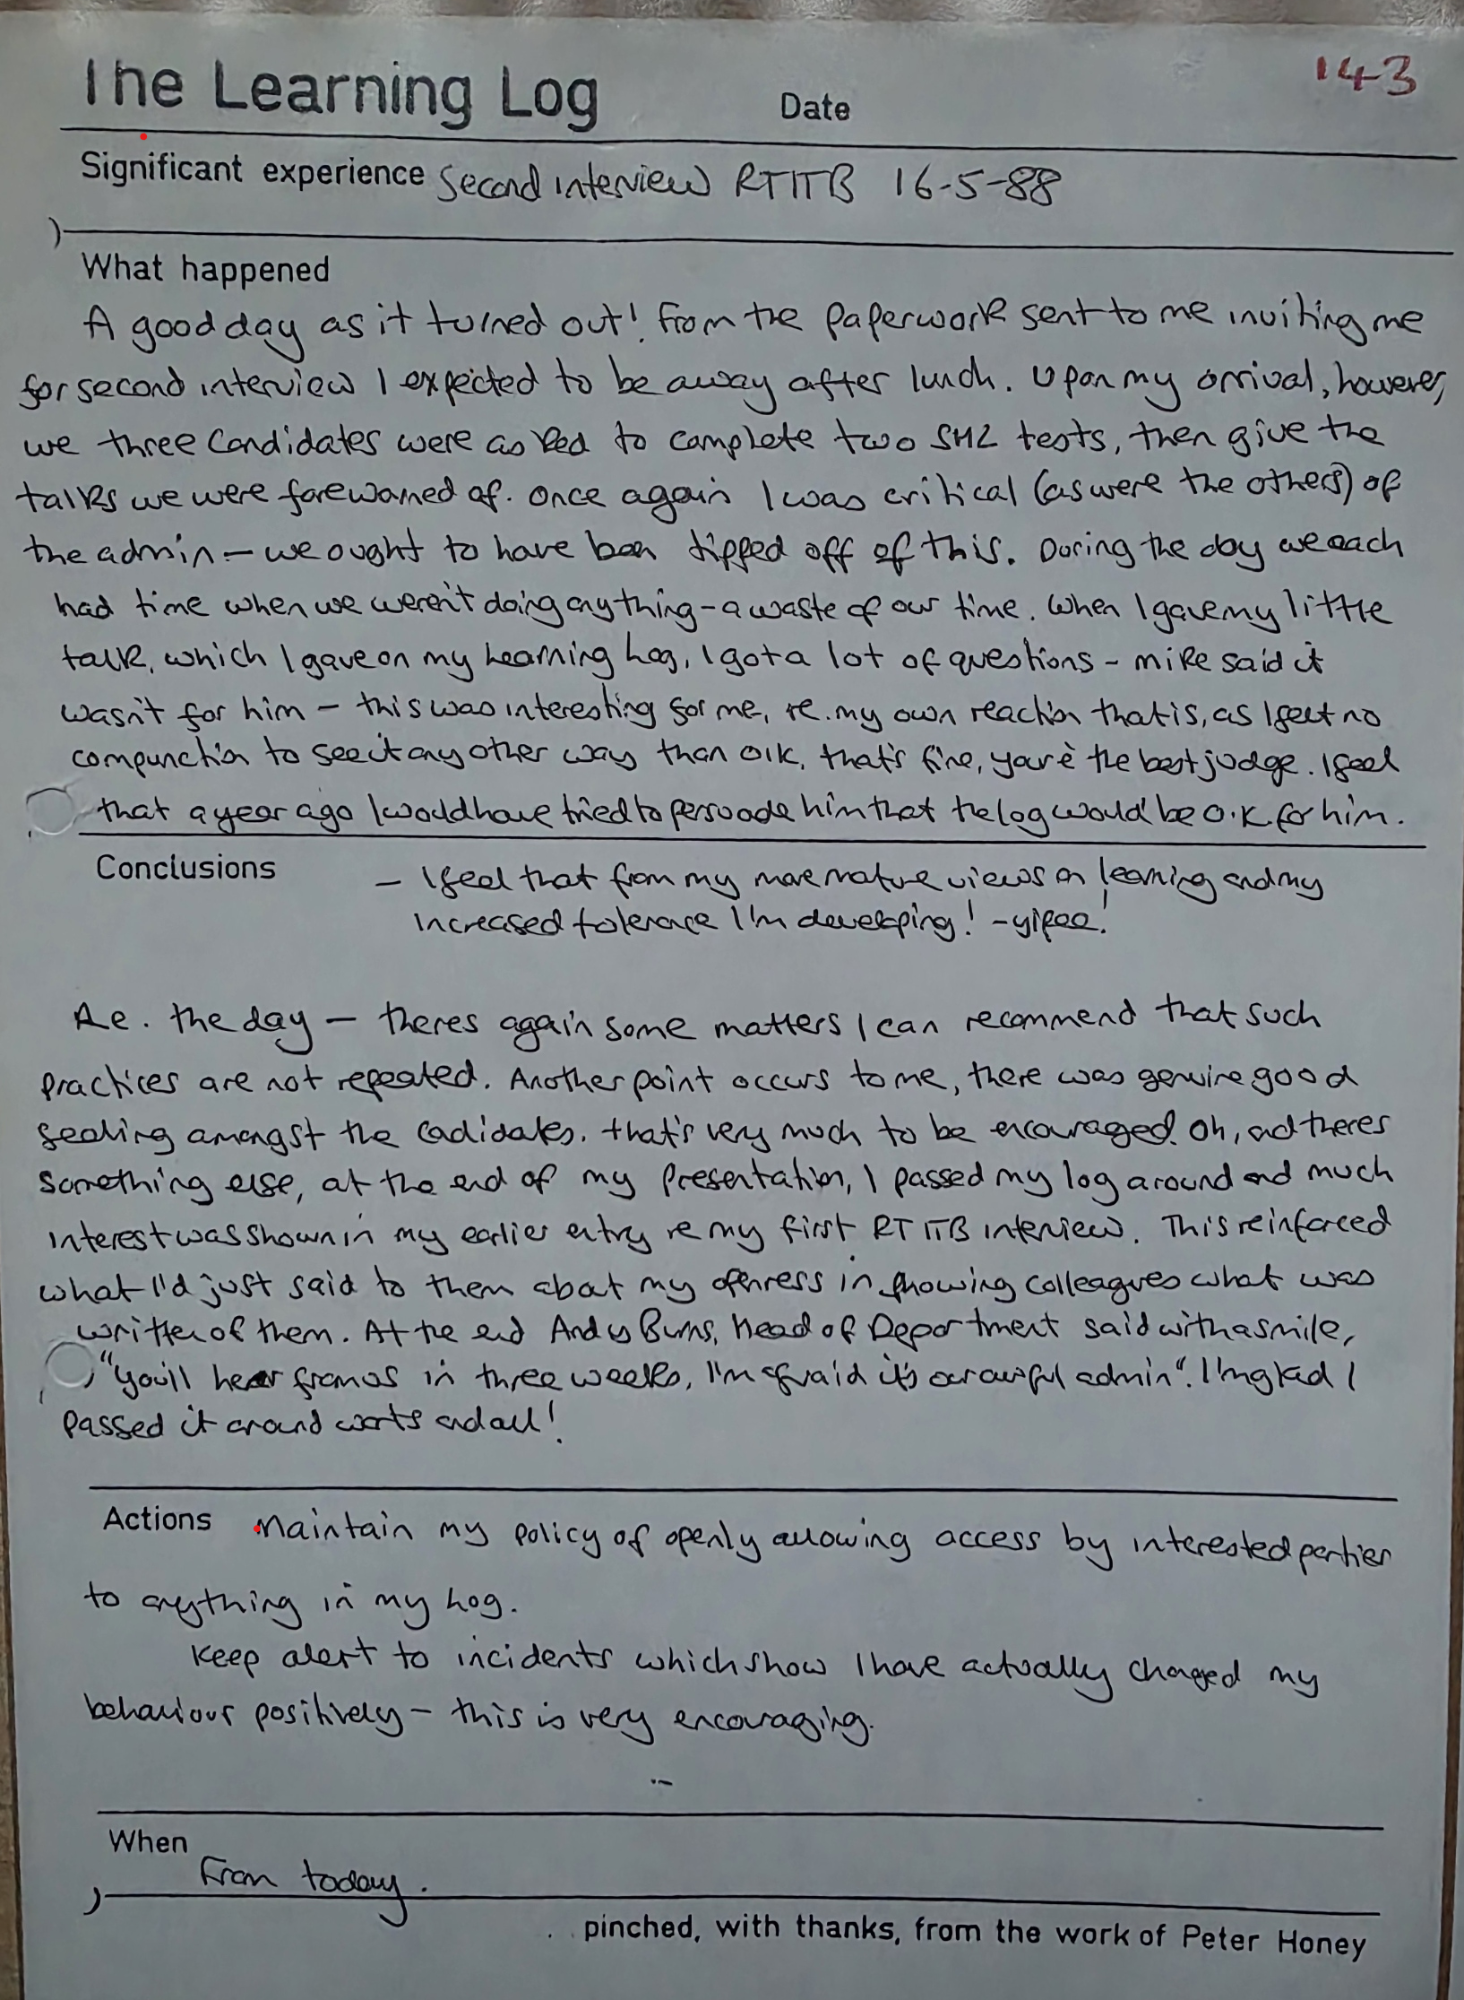 The Learning Log Date 143
Significant experience Second interview RTITB 16-5-88
What happened
A good day as it turned out! From the paperwork sent to me inviting me
for second interview I expected to be away after lunch. Upon my arrival, however,
we three candidates were asked to complete two SHL tests, then give the
talks we were forewarned of. Once again I was critical (as were the others) of
the admin — we ought to have been tipped off of this. During the day we each
had time when we weren't doing anything - a waste of our time. When I gave my little
talk, which I gave on my Learning Log, I got a lot of questions - Mike said it
wasn't for him - this was interesting for me, re. my own reaction that is, as I felt no
compunction to see it any other way than o.k, that's fine, you're the best judge. I feel
that a year ago I would have tried to persuade him that the log would be O.K. for him.
Conclusions — I feel that from my more mature views on learning and my
increased tolerance I'm developing! - yipee!
Re. the day — theres again some matters I can recommend that such
practices are not repeated. Another point occurs to me, there was genuine good
feeling amongst the cadidates. that's very much to be encouraged. Oh, and theres
something else, at the end of my presentation, I passed my log around and much
interest was shown in my earlier entry re my first RTITB interview. This reinforced
what I'd just said to them about my openness in showing colleagues what was
written of them. At the end Andy Burns, Head of Department said with a smile,
"You'll hear from us in three weeks, I'm afraid it's our awful admin". I'm glad I
passed it around warts and all!
Actions Maintain my policy of openly allowing access by interested parties
to anything in my Log.
Keep alert to incidents which show I have actually changed my
behaviour positively - this is very encouraging.
When
From today.
pinched, with thanks, from the work of Peter Honey